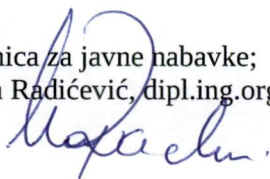 nica za javne nabavke;
Radićević, dipl.ing.org